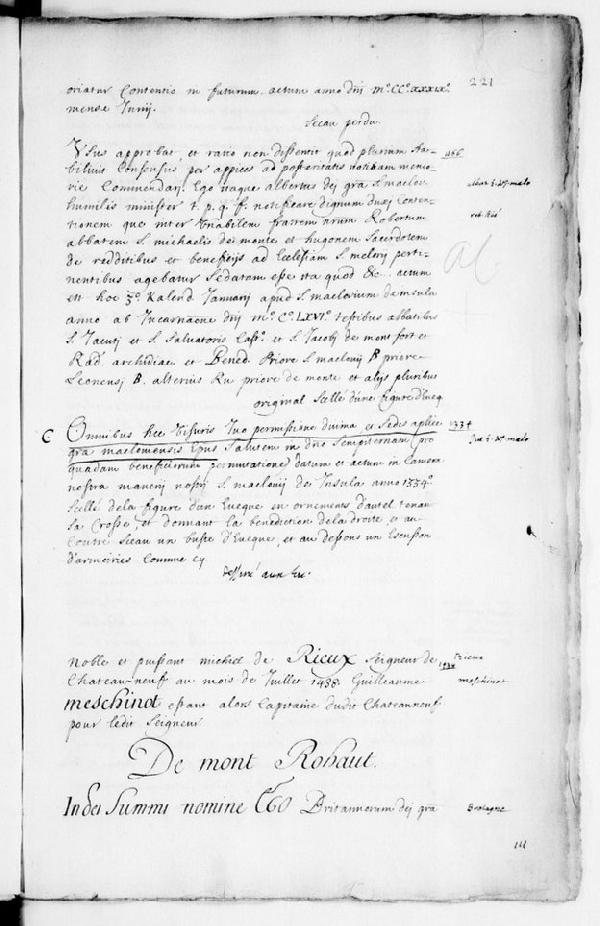 221
oriatur Contentio in futurum. actum anno dnj mº.CCº.xxxixº.
mense Junij.
Sceau perdu.
Usus approbat, et ratio non dissentit quod plurium sta-
bilium Consensus per appices ad posteritatis notitiam memo-
rie Commendarj. Ego itaque albertus dej gra s. maclov.
humilis minister t. p. q. ff. notificare dignum duxj Conten-
tionem que inter fratrem nrum Robertum
abbatem S. michaelis de monte et hugonem Sacerdotem
de redditibus et beneficijs ad Ecclesiam S. melorij perti-
nentibus agebatur Sedatam esse ita quod &c. actum
est hoc 3º. Kalend. Januarij apud S. maclovium de insula
anno ab Incarnaone dnj mº.Cº.LXVIº. testibus abbatibus
S. Jacutj et S. Salvatoris et S. Jacobj de mont fort et
Rad. archidiac. et Bened. Priore S. maclovij B priore
Leonensj B. alterius priore de monte et alijs pluribus
original Scellé d'une figure d'Eveq
C Omnibus hec Visuris Ivo permissione divina et Sedis aplice 1334
gra macloviensis Epus Salutem in dno Sempiternam pro
quadam beneficiorum permutatione datum et actum in Camera
nostra manerij nostrj S. maclovij de Insula anno 1334º.
Scellé de la figure d'un Eveque en ornements d'autel tenant
Sa Crosse, et donnant la benediction de la droite, et au
Contre Sceau un buste d'Eveque, et au dessous un Escusson
d'armoiries Comme cy
noble et puissant michel de Rieux Seigneur de
Chateauneuf au mois de Juillet 1438. Guilleaume
meschinot estant alors Capitaine dudit Chateauneuf
pour ledit Seigneur
Rieux
meschinot
De mont Rohaut.
In dei Summi nomine Ego Britannorum dej gra
Bretagne